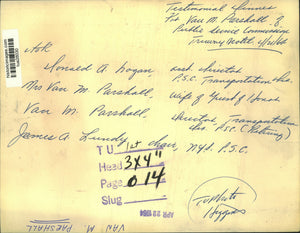 Testimonial Dinner
For Van M. Parshall of
Public Service Commission
LtoR
Donald A. Hogan asst director
P.S.C. Transportation Div.
Mrs Van M. Parshall, Wife of Guest of Honor
Van M. Parshall, director, Transportation
Div. P.S.C. (Retiring)
James A. Lundy 1st chair, NYS. P.S.C.
TU
Head 3x4"
Page 014
Slug
APR 22 1964
Higgins
VAN M. PARSHALL